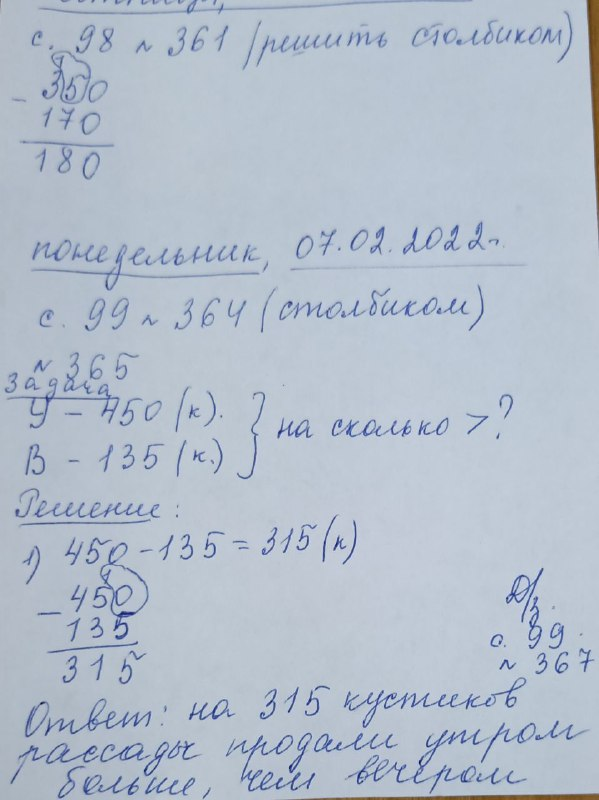 с. 98 ~ 361 (решить столбиком)
- 350
170
180
понедельник, 07.02.2022г.
с. 99 ~ 364 (столбиком)
~ 365
Задача
У - 450 (к).
В - 135 (к.)
} на сколько > ?
Решение:
1) 450 - 135 = 315 (к)
- 450
135
315
Д/з.
с. 99.
~ 367
Ответ: на 315 кустиков
рассады продали утром
больше, чем вечером